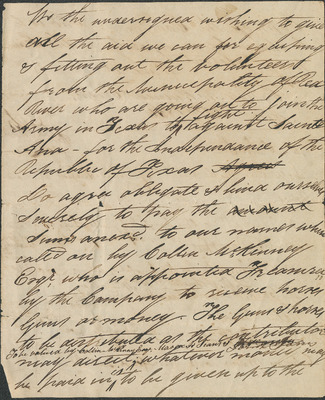 We the undersigned wishing to give
all the aid we can for equiping
& fitting out the volunteers
from the Municipality of Red
River who are going out to join the
Army in Texas to fight against Santa
Ana - for the Independance of the
Republic of Texas
do agree obligate & bind ourselves
Severely to pay the amount
Sums anexd. to our names when
caled on by Colin McKinney
Esqr. who is appointed Treasurer
by the Company to receive horses
Guns or money - The Guns & horses
to be valued by Colin McKinney
to be distributed as the
may direct whatever money may
be paid in, to be given up to the